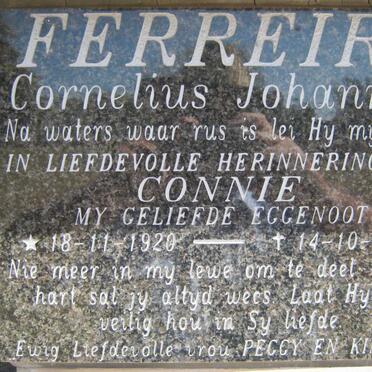 FERREIR
Cornelius Johann
Na waters waar rus is lei Hy my
IN LIEFDEVOLLE HERINNERING
CONNIE
MY GELIEFDE EGGENOOT
★ 18-11-1920 — ✝ 14-10-
Nie meer in my lewe om te deel
hart sal jy altyd wees. Laat Hy
veilig hou in Sy liefde.
Ewig Liefdevolle vrou PEGGY EN KI